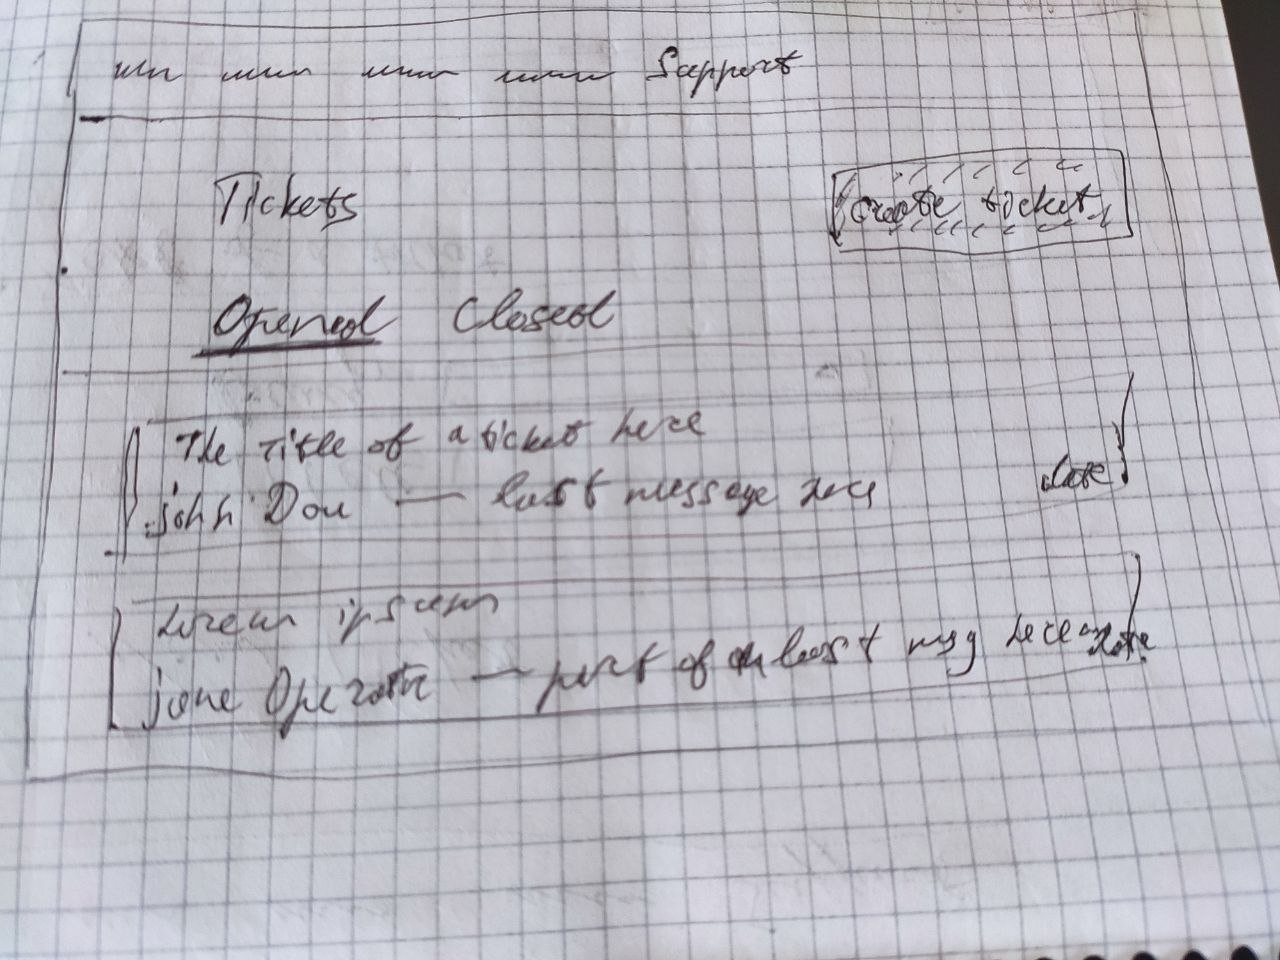 Support
Tickets
Create ticket
Opened Closed
The Title of a ticket here
john Dou — last message here
date
Lorem ipsum
jane Operator — part of a last msg here
date